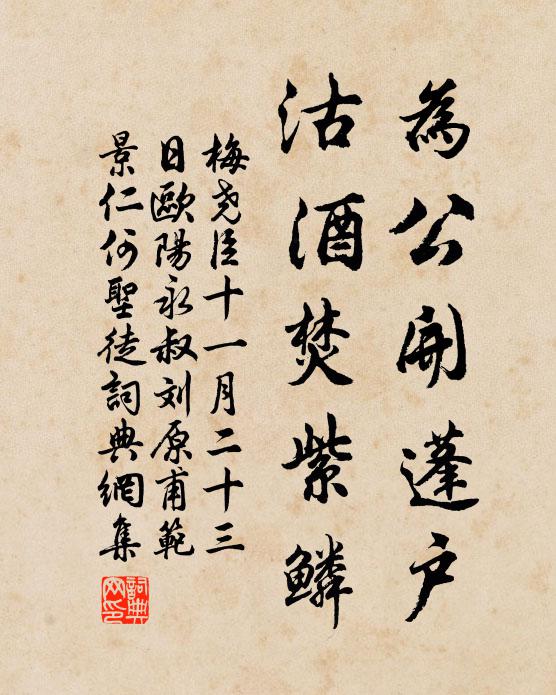 為公開蓬户
沽酒焚紫鱗
梅尧臣十一月二十三
日歐陽永叔刘原甫範
景仁何聖徒詞典網集
詞典网印